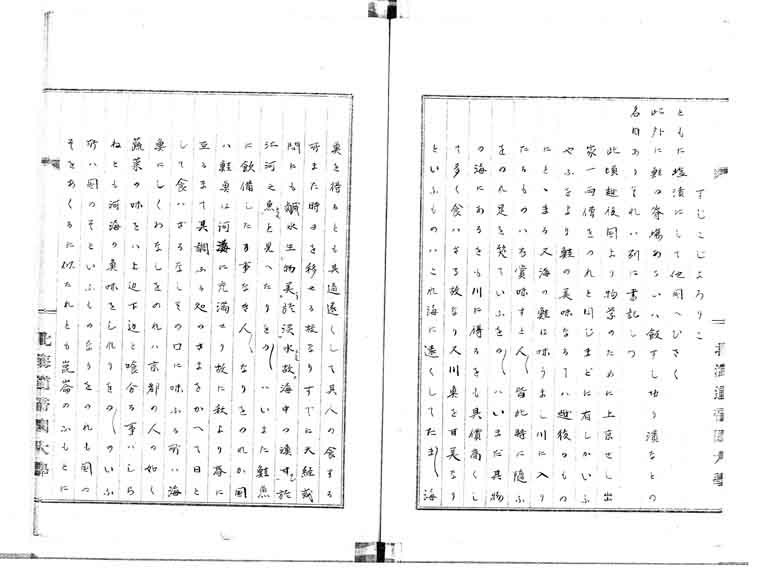 すじこじょろりこ
ともに塩漬にして他国へひさく
此外に鮭の寄場あるいハ飯すし切り漬なとの
名目ありそれハ別に書記しつ
此頃越後国より物学のために上京せし出
家一両僧をのれと同じまどに有しかいふ
やふをより鮭の美味なるハ越後のもの
にとゝまる又海の鮭は味うまし川に入り
たるものハ賞味すと人皆此時に随ふ
をのれ是を笑ていふをのハいまだ其物
の海にあるをも川に得るをも其價高くし
て多く食ハざる故なり又川魚を甘美なり
といふものハこれ海に遠くしてたま〱海
魚を得るとも其道遠くして其人の食する
所また時日を移せる故なりすでに天経或
問にも鹹水生物美於淡水故海中の漁甘於
江河之魚と見へたりをの〱ハいまた鮭魚
に飲備したる事なき人〱なりをのれか国
ハ鮭魚は河海に充満せり故に秋より春に
至るまて其調ふる処のさまをかへて日と
して食ハざるなしその口に味ふる所ハ海
魚にしくわなしをのれハ京都の人の如く
蔬菜の味をハよ上辺下辺と喰合る事ハしら
ねとも河海の魚味をしれりをの〱のいふ
所ハ同のそといふものなりをのれも国っ
そをあくるに似たれとも崑崙のふもとに